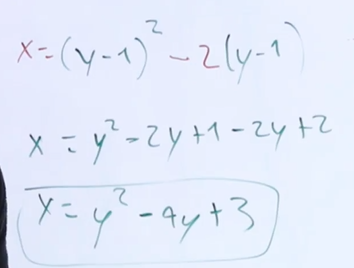 x=(y-1)² -2(y-1)
x = y²-2y+1-2y+2
x=y²-4y+3